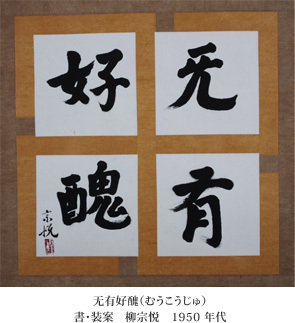 无有
好醜
宗悦
无有好醜(むうこうじゅ)
書・装案　柳宗悦　1950年代